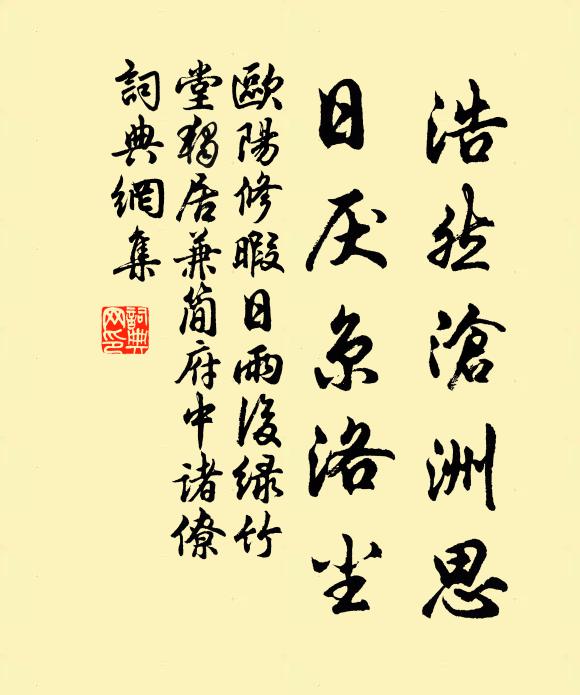 浩然滄洲思
日厌京洛尘
歐陽修暇日雨後緑竹
堂獨居兼简府中諸僚
詞典網集
詞典
网印